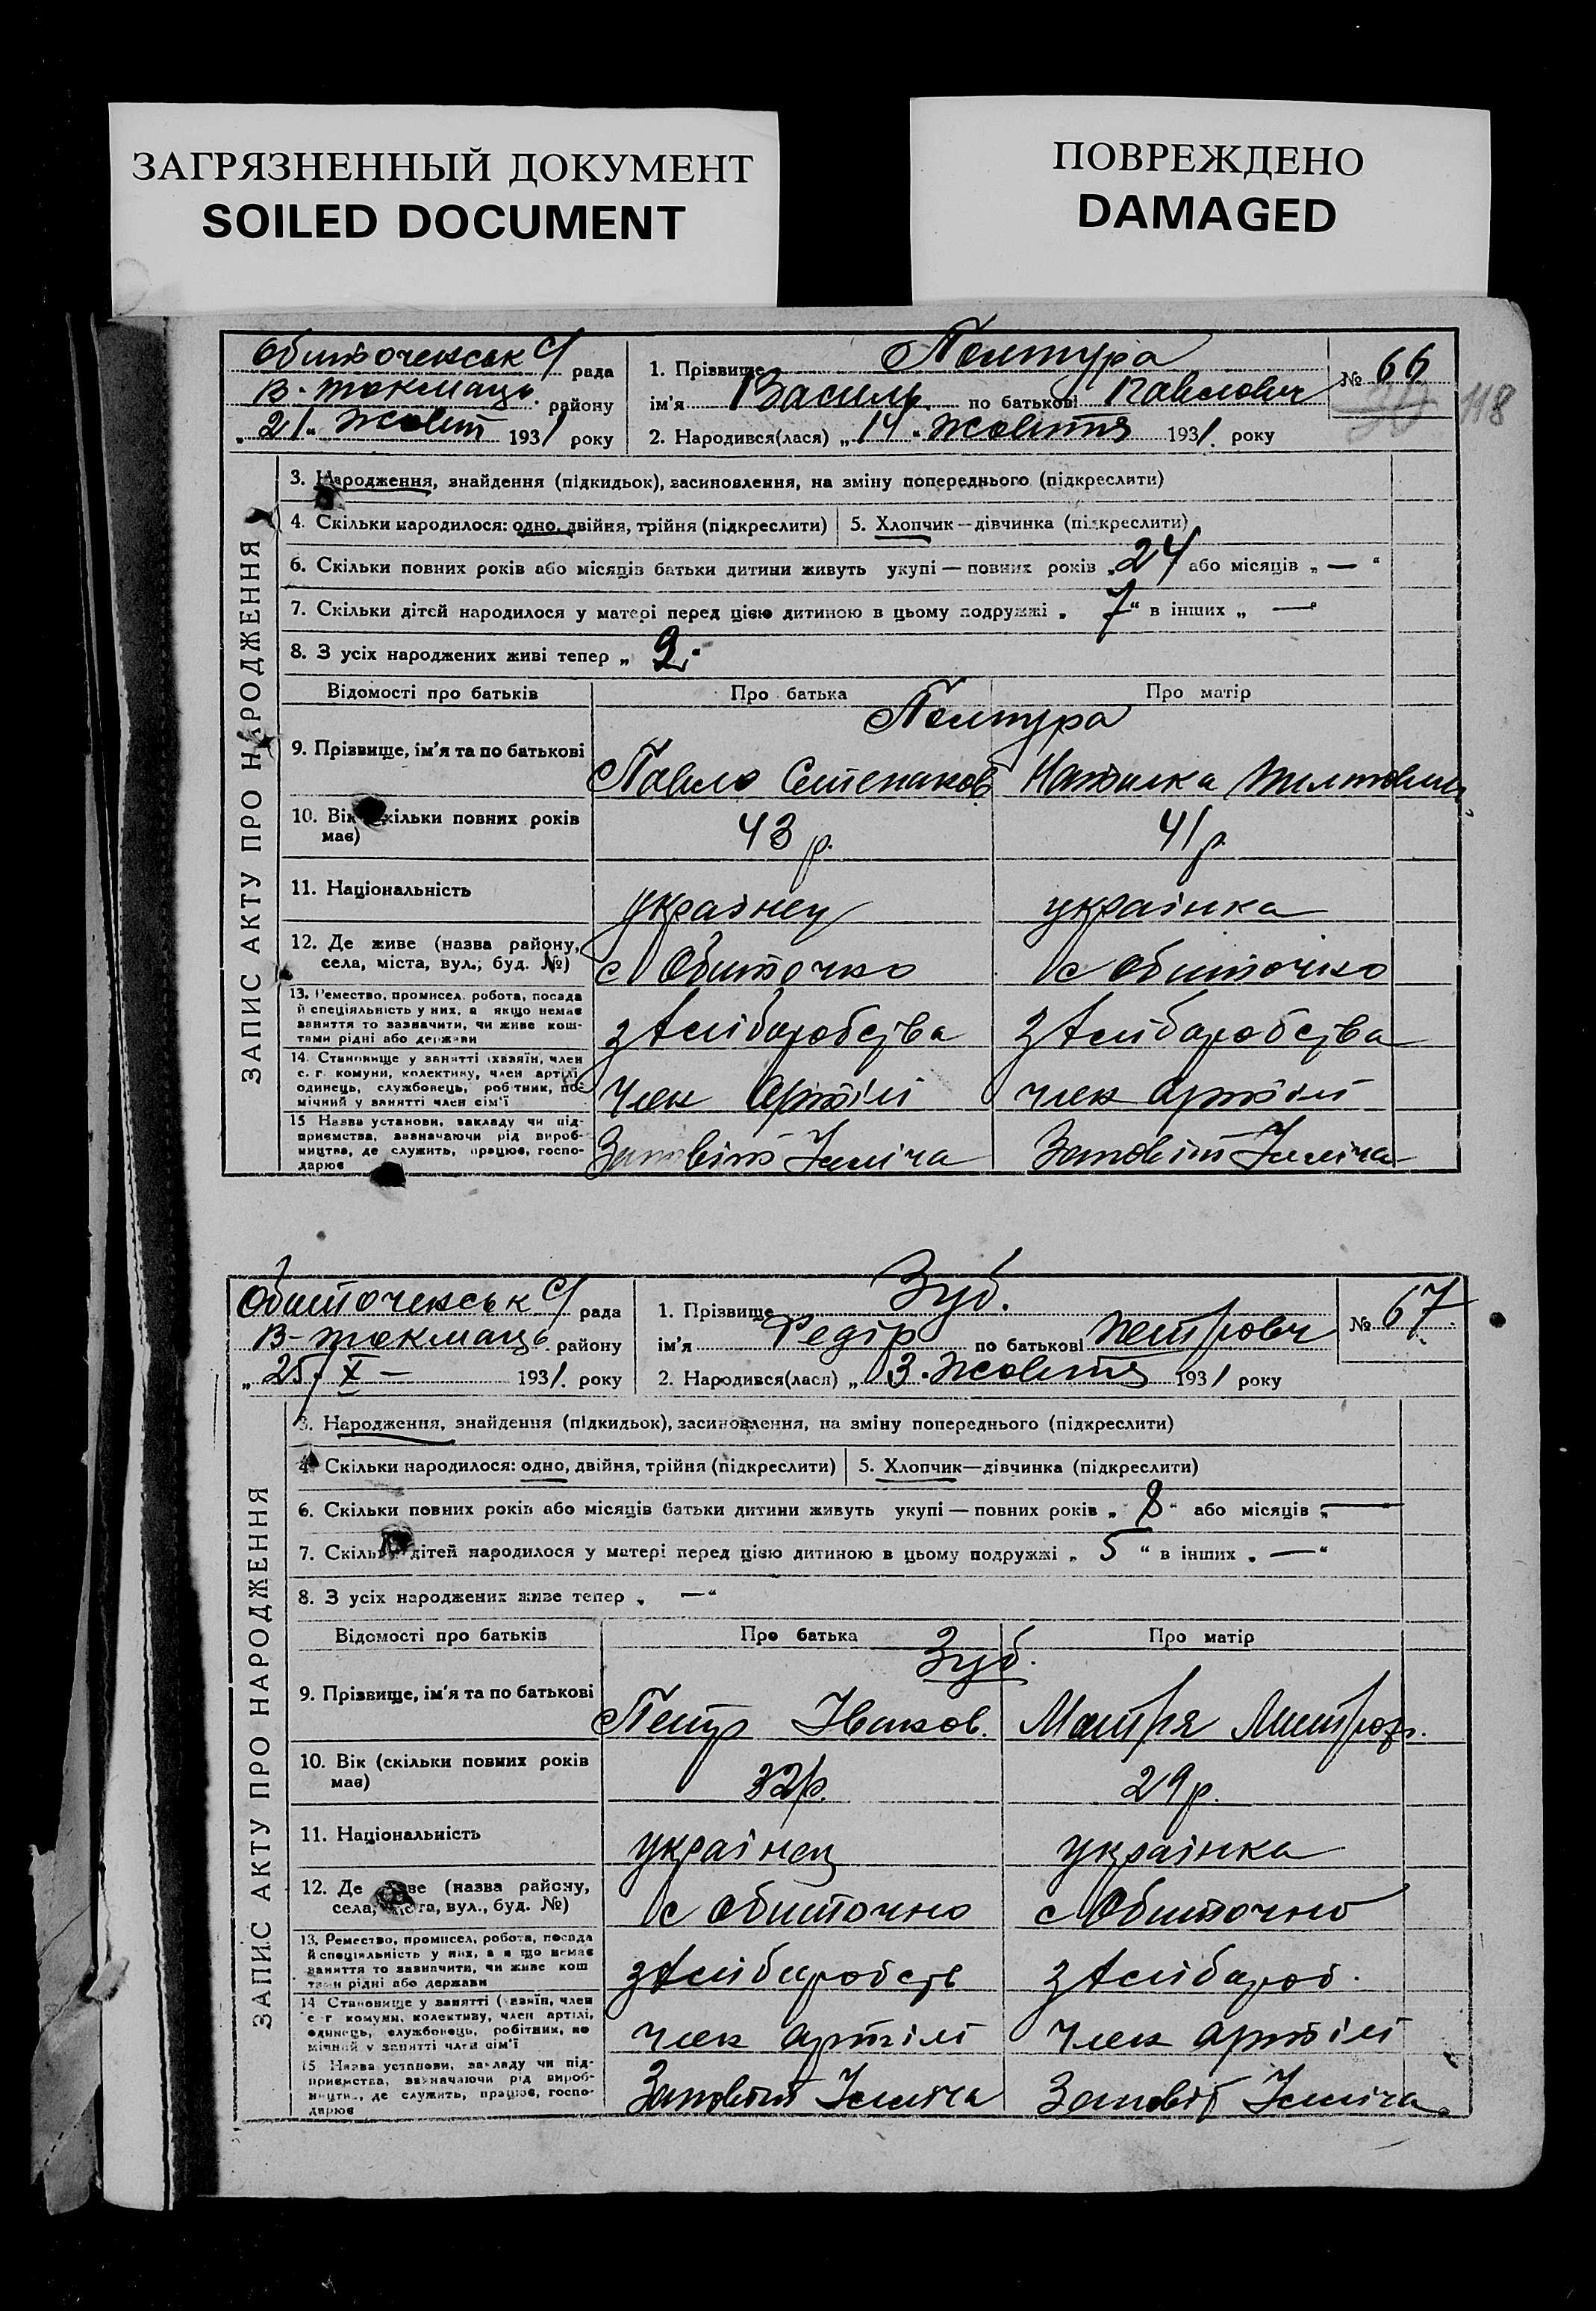 ЗАГРЯЗНЕННЫЙ ДОКУМЕНТ
SOILED DOCUMENT
ПОВРЕЖДЕНО
DAMAGED
Обиточенськ с/ рада
В-Токмаць. району
„21“ Жовт 1931 року
1. Прізвище Полтура
ім'я Василь по батькові Павлович
2. Народився(лася) „14“ Жовтня 1931. року
№ 66
118
ЗАПИС АКТУ ПРО НАРОДЖЕННЯ
3. Народження, знайдення (підкидьок), засиновлення, на зміну попереднього (підкреслити)
4. Скільки народилося: одно, двійня, трійня (підкреслити) 5. Хлопчик—дівчинка (підкреслити)
6. Скільки повних років або місяців батьки дитини живуть укупі — повних років „24“ або місяців „—“
7. Скільки дітей народилося у матері перед цією дитиною в цьому подружжі „7“ в інших „—“
8. З усіх народжених живі тепер „2“
Відомості про батьків Про батька Про матір
Полтура
9. Прізвище, ім'я та по батькові
Павло Степанов Наталка
10. Вік (скільки повних років
має)
43 р. 41 р.
11. Національність українец українка
12. Де живе (назва району,
села, міста, вул.; буд. №)
с Обиточно с Обиточно
13. Ремество, промисел, робота, посада
й спеціяльність у них, а якщо немає
заняття то зазначити, чи живе кош-
тами рідні або держави
з хліборобства з хліборобства
14. Становище у занятті (хазяїн, член
с.-г. комуни, колективу, член артілі,
одинець, службовець, робітник, по-
мічний у занятті член сім'ї
член артілі член артілі
15 Назва установи, закладу чи під-
приємства, зазначаючи рід вироб-
ництва, де служить, працює, госпо-
дарює
Заповіт Ілліча Заповіт Ілліча
Обиточенськ с/ рада
В-Токмаць району
„25/ X — 1931. року
1. Прізвище Зуб.
ім'я Федір по батькові Петрович
2. Народився(лася) „3. Жовтня 1931 року
№ 67.
ЗАПИС АКТУ ПРО НАРОДЖЕННЯ
3. Народження, знайдення (підкидьок), засиновлення, на зміну попереднього (підкреслити)
4. Скільки народилося: одно, двійня, трійня (підкреслити) 5. Хлопчик—дівчинка (підкреслити)
6. Скільки повних років або місяців батьки дитини живуть укупі — повних років „8“ або місяців „—“
7. Скільки дітей народилося у матері перед цією дитиною в цьому подружжі „5“ в інших „—“
8. З усіх народжених живе тепер „—“
Відомості про батьків Про батька Про матір
Зуб.
9. Прізвище, ім'я та по батькові
Петро Іванов. Мотря
10. Вік (скільки повних років
має)
32р. 29р.
11. Національність українец українка
12. Де живе (назва району,
села, міста, вул., буд. №)
с Обиточно с Обиточно
13. Ремество, промисел, робота, посада
й спеціяльність у них, а якщо немає
заняття то зазначити, чи живе кош
тами рідні або держави
з хлібороб з хлібороб.
14 Становище у занятті (хазяїн, член
с г комуни, колективу, член артілі,
одинець, службовець, робітник, по
мічний у занятті член сім'ї
член артілі член артілі
15 Назва установи, закладу чи під-
приємства, зазначаючи рід вироб-
ництва, де служить, працює, госпо-
дарює
Заповіт Ілліча Заповіт Ілліча